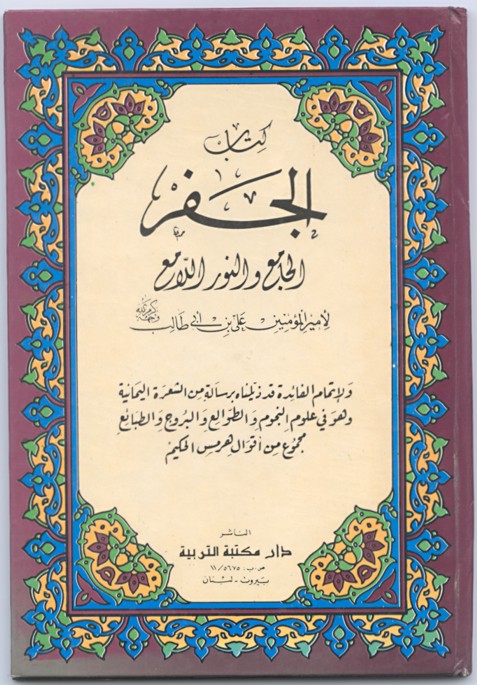 كتاب
الجفر
الجامع والنور اللامع
لأمير المؤمنين علي بن أبي طالب كرم الله وجهه
ولإتمام الفائدة قد ذيلناه برسالة من الشعرة اليمانية
وهو في علوم النجوم والطوالع والبروج والطبائع
مجموع من أقوال هرمس الحكيم
الناشر
دار مكتبة التربية
ص.ب. ١١/٥٦٧٥
بيروت - لبنان